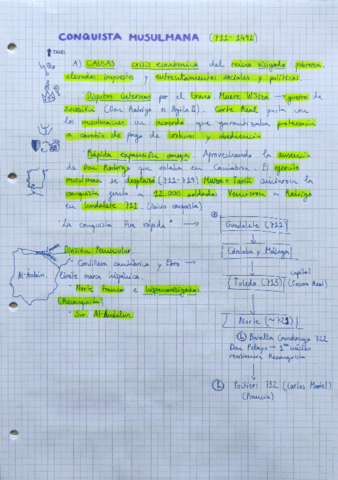 CONQUISTA MUSULMANA (711-1492)
A) CAUSAS: crisis económica del reino visigodo pobreza,
elevados impuestos y enfrentamientos sociales y políticos.
Disputas internas por el trono Muere Witiza → guerra de
sucesión (Don Rodrigo o Agila II). Corte Real pacta con
los musulmanes un acuerdo que garantizaba protección
a cambio de pago de tributos y obediencia
Rápida expansión omeya. Aprovechando la ausencia
de Don Rodrigo que estaba en Cantabria. El ejército
musulmán se desplazó (711-719) Musa + Tarik
conquista junto a 12.000 soldados. Vencieron a Rodrigo
en Guadalete 711.
"La conquista fue rápida" →
Guadalete (711)
Córdoba y Málaga
Toledo (713) capital
(Tesoro Real)
Norte (~721)
División Peninsular
· Cordillera cantábrica y Ebro →
límite marca hispánica.
· Norte franco e hispanovisigodo
(Reconquista)
· Sur: Al-Andalus.
Al-Andalus
Batalla Covadonga 722
Don Pelayo → 1er núcleo
resistencia Reconquista
Poitiers 732 (Carlos Martel)
(Francia)